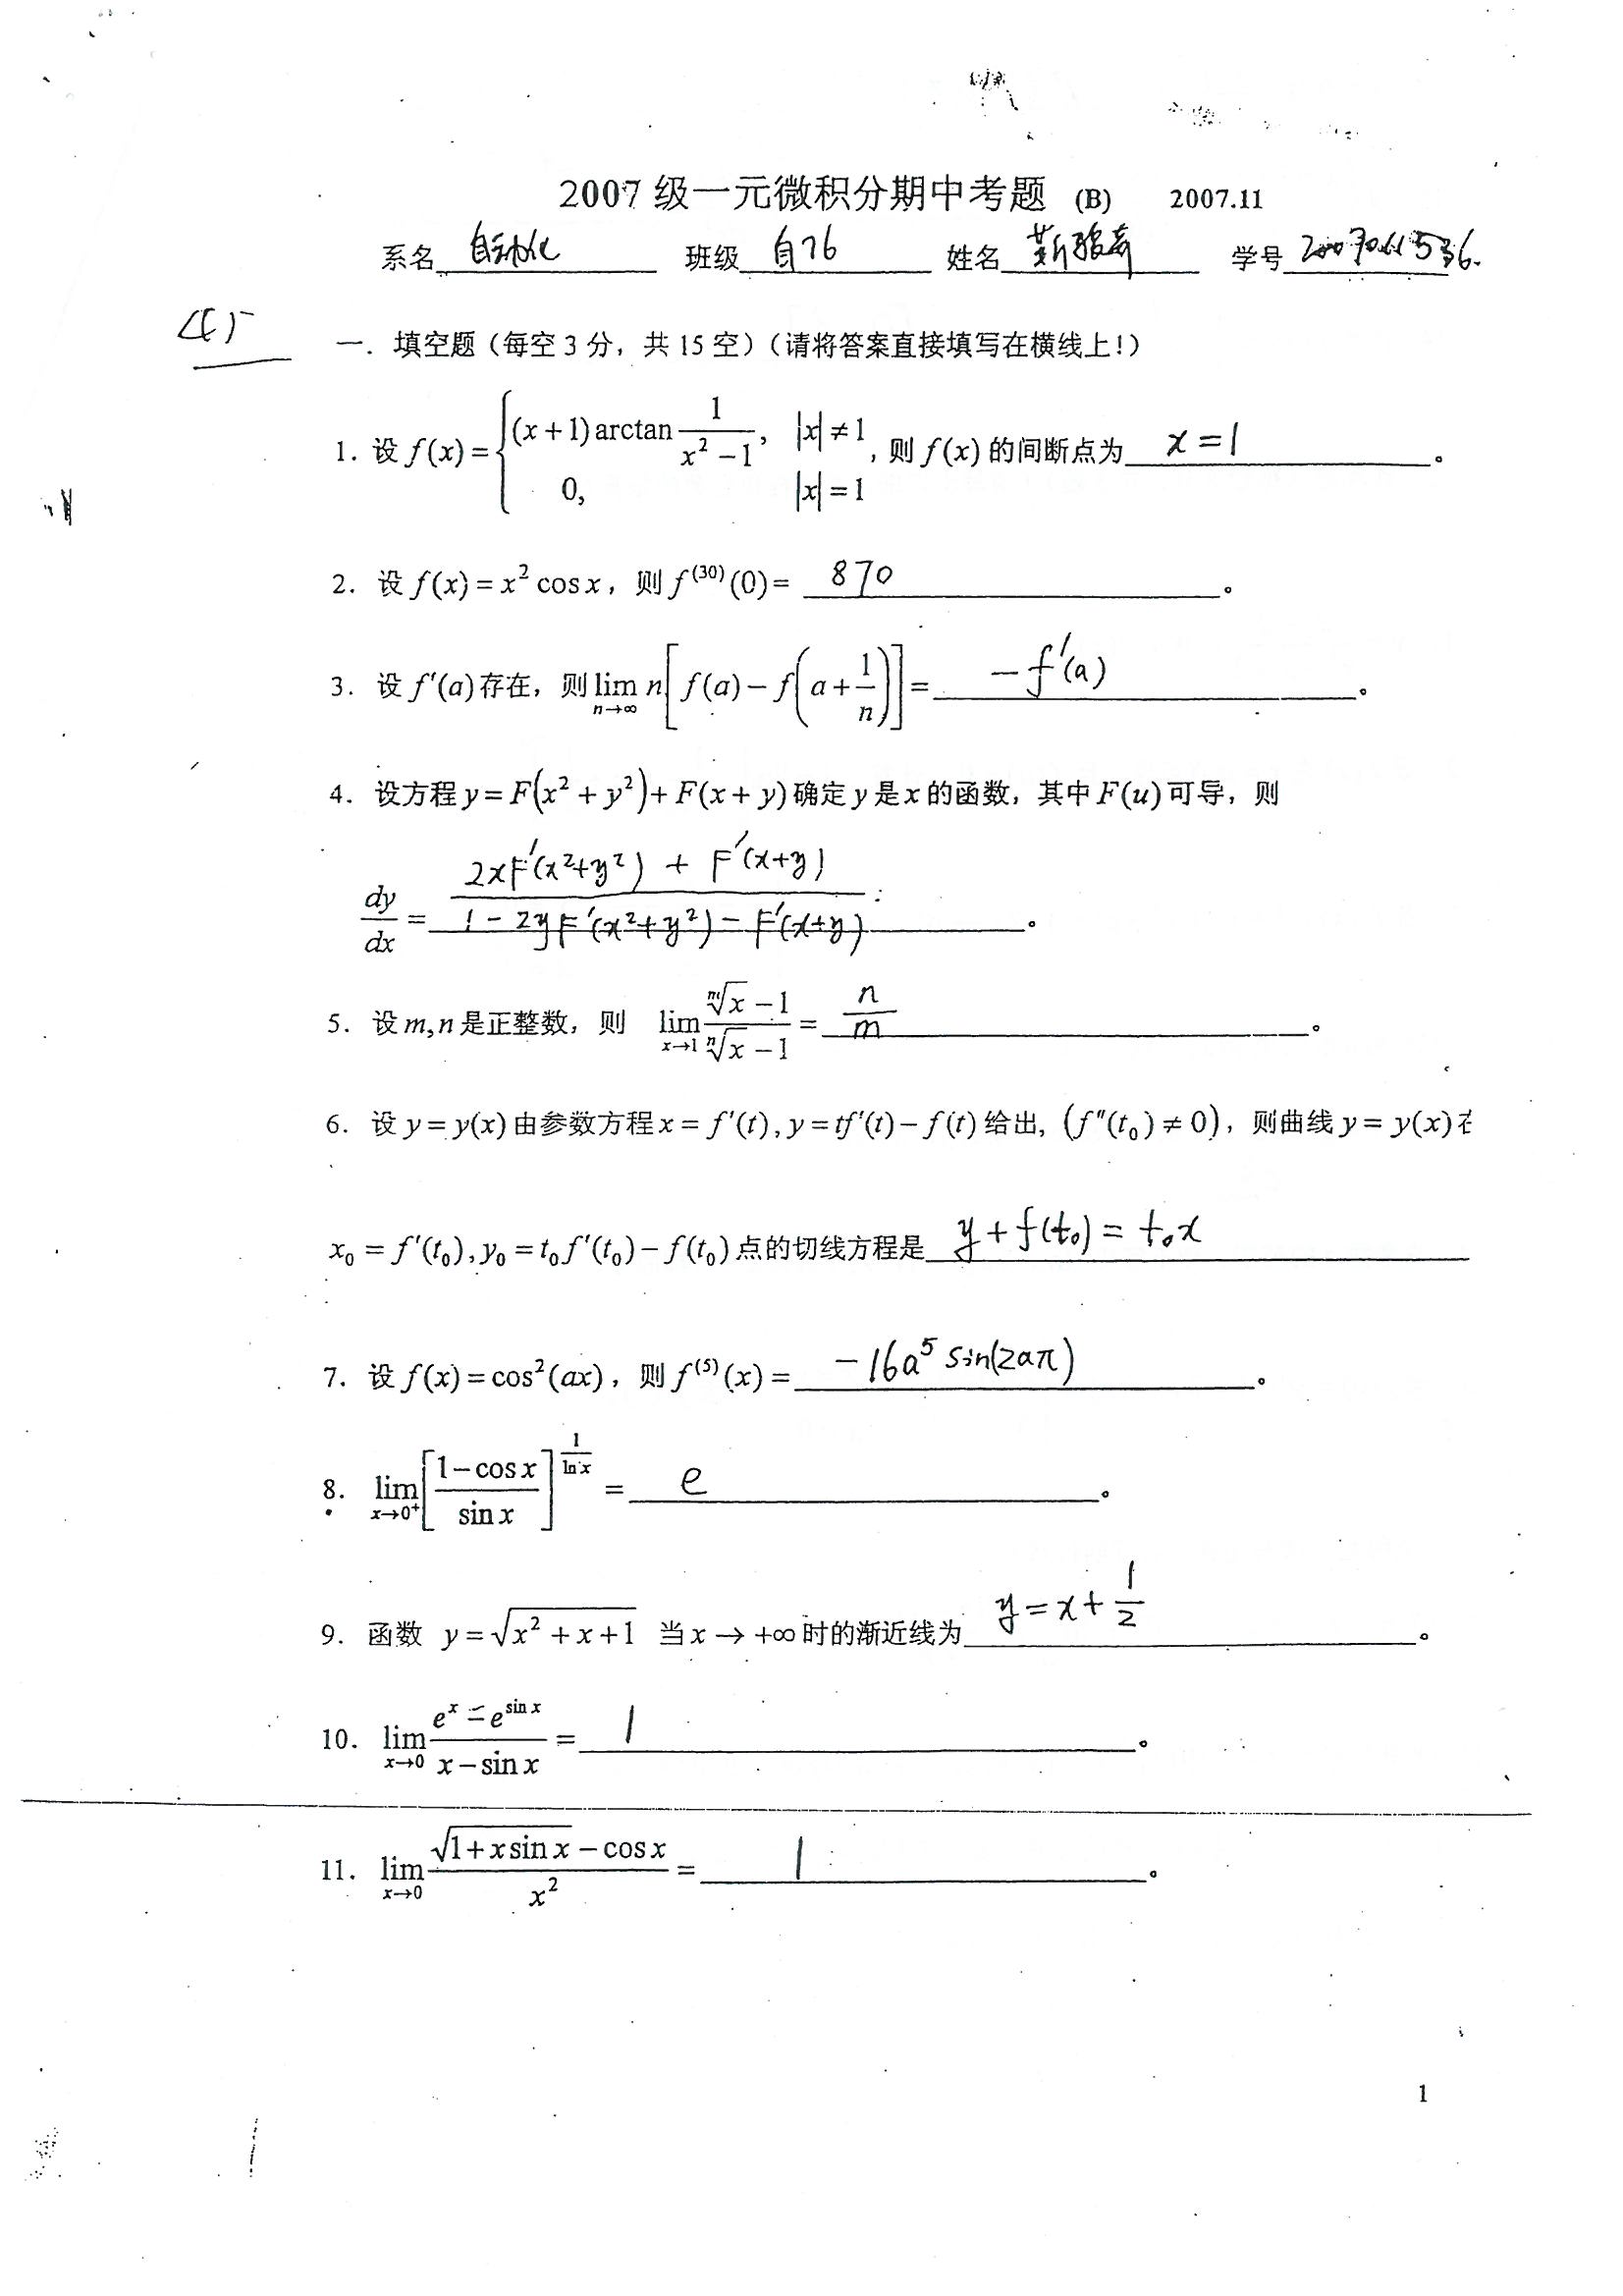 2007 级一元微积分期中考题 (B) 2007.11
系名 自动化 班级 自76 姓名 靳骏奇 学号
一．填空题（每空 3 分，共 15 空）（请将答案直接填写在横线上！）
1. 设 f(x) = { (x+1) arctan 1/(x² −1), |x| ≠ 1; 0, |x| = 1 , 则 f(x) 的间断点为 x = 1 。
2. 设 f(x) = x² cos x，则 f⁽³⁰⁾(0) = 870 。
3. 设 f′(a) 存在，则 lim n→∞ n[ f(a) − f( a + 1/n ) ] = −f′(a) 。
4. 设方程 y = F(x² + y²) + F(x + y) 确定 y 是 x 的函数，其中 F(u) 可导，则
dy/dx = (2xF′(x²+y²) + F′(x+y)) / (1 − 2yF′(x²+y²) − F′(x+y)) 。
5. 设 m,n 是正整数，则 lim x→1 (ᵐ√x − 1)/(ⁿ√x − 1) = n/m 。
6. 设 y = y(x) 由参数方程 x = f′(t), y = tf′(t) − f(t) 给出，(f″(t₀) ≠ 0)，则曲线 y = y(x)
x₀ = f′(t₀), y₀ = t₀f′(t₀) − f(t₀) 点的切线方程是 y + f(t₀) = t₀x
7. 设 f(x) = cos²(ax)，则 f⁽⁵⁾(x) = −16a⁵ sin(2aπ) 。
8. lim x→0⁺ [ (1 − cos x)/sin x ]^(1/ln x) = e 。
9. 函数 y = √(x² + x + 1) 当 x → +∞ 时的渐近线为 y = x + 1/2 。
10. lim x→0 (eˣ − e^(sin x))/(x − sin x) = 1 。
11. lim x→0 (√(1 + x sin x) − cos x)/x² = 1 。
1